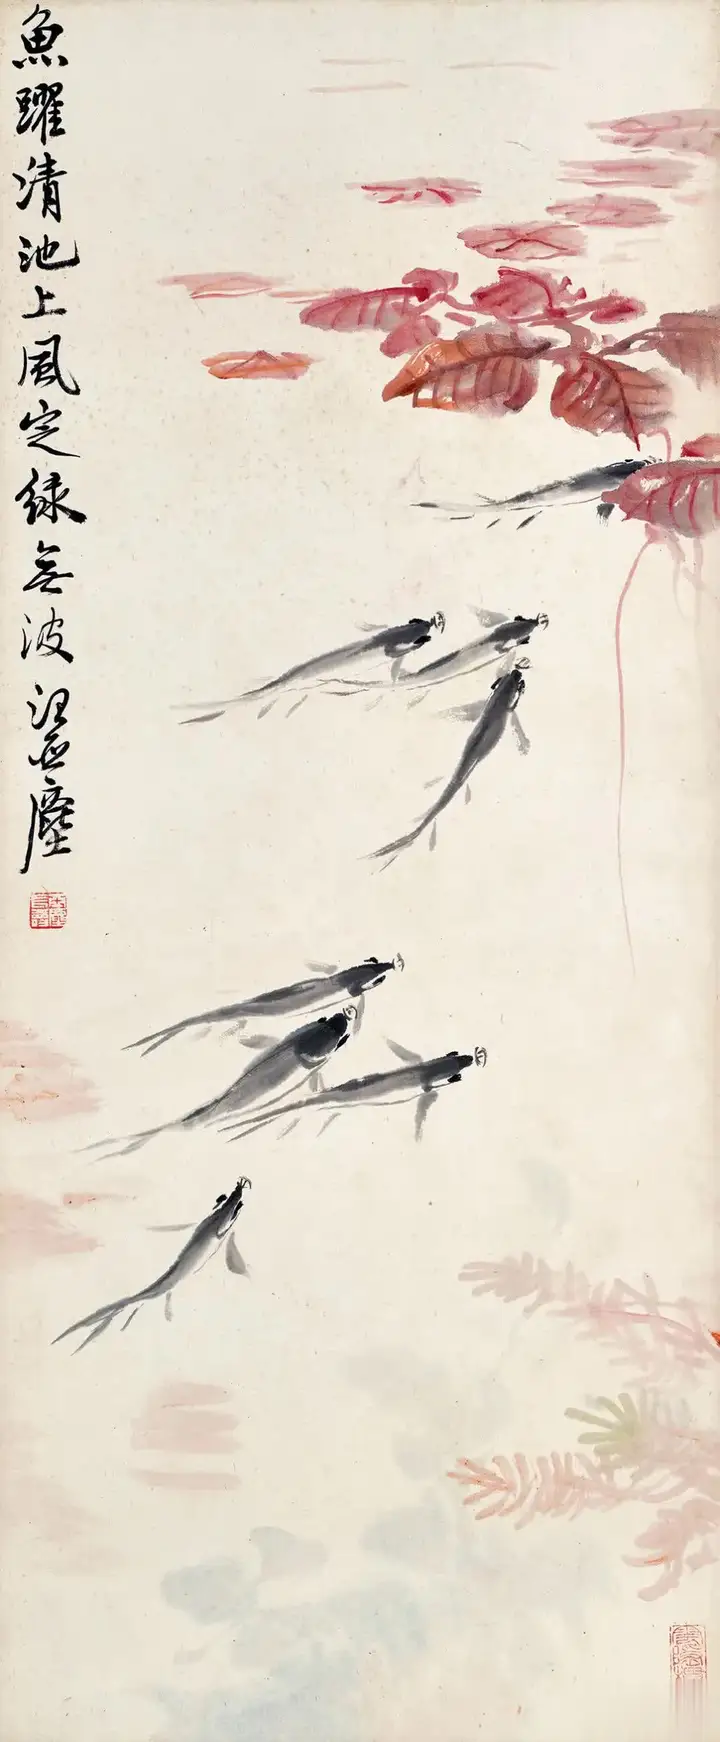 魚躍清池上風定綠無波汪亞塵